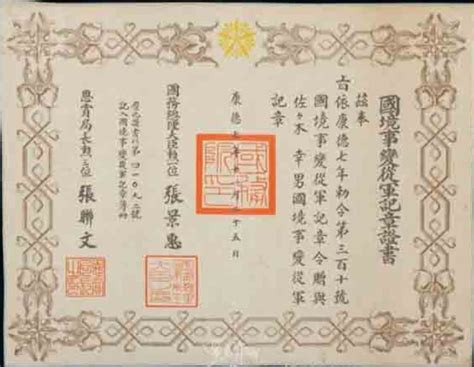 國境事變從軍記章證書
茲奉
旨依康德七年勅令第三百十號
國境事變從軍記章令贈與
佐々木幸男國境事變從軍
記章
康德七年 月 十五日
國務院之印
國務總理大臣勲一位 張景惠
第四一〇九二號
記入國境事變從軍記章簿冊
恩賞局長勲三位 張聯文